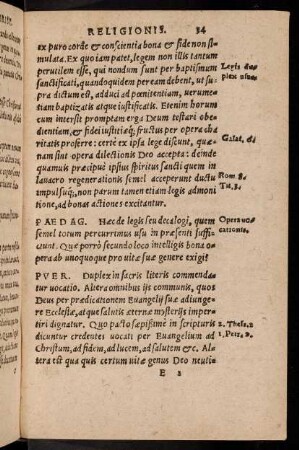 RELIGIONIS. 34
ex puro corde & conscientia bona & fide non si-
mulata. Ex quo iam patet, legem non illis tantum
perutilem esse, qui nondum sunt per baptismum
sanctificati, quandoquidem peream debent, ut su-
pra dictum est, adduci ad pœnitentiam, uerumetiam
baptizatis atque iustificatis. Etenim horum
cum intersit promptam erga Deum testari obe-
dientiam, & fidei iustitiaq́; fructus per opera cha-
ritatis proferre: certè ex ipsa lege discunt, quæ-
nam sint opera dilectionis Deo accepta: deinde
quamuis præcipuè ipsius spiritus sancti quem in
lauacro regenerationis semel acceperunt ductu
impulsuq́;, non parum tamen etiam legis admoni
tione, ad bonas actiones excitantur.
Legis du-
plex usus.
Galat. 5.
Rom. 8.
Tit. 3.
PAEDAG. Hæc de legis seu decalogi, quem
semel totum percurrimus usu in præsenti suffi-
ciunt. Que porrò secundo loco intelligis bona o-
pera ab unoquoque pro uitæ suæ genere exigi?
Opera uo-
cationis.
PVER. Duplex in sacris literis commenda-
tur uocatio. Altera omnibus ijs communis, quos
Deus per prædicationem Euangelij suæ adiunge-
re Ecclesiæ, atque salutis æternæ mysterijs imper-
tiri dignatur. Quo pacto sæpissime in scripturis
dicuntur credentes uocati per Euangelium ad
Christum, ad fidem, ad lucem, ad salutem &c. Al-
tera est qua quis certum uitæ genus Deo neuti-
2. Thess. 2
1. Petr. 2.
E 2